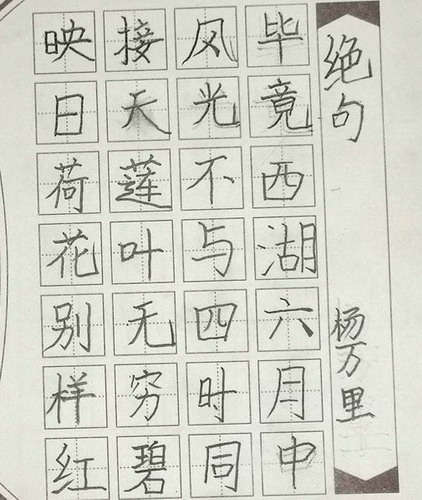 绝句
杨万里
毕竟西湖六月中
风光不与四时同
接天莲叶无穷碧
映日荷花别样红